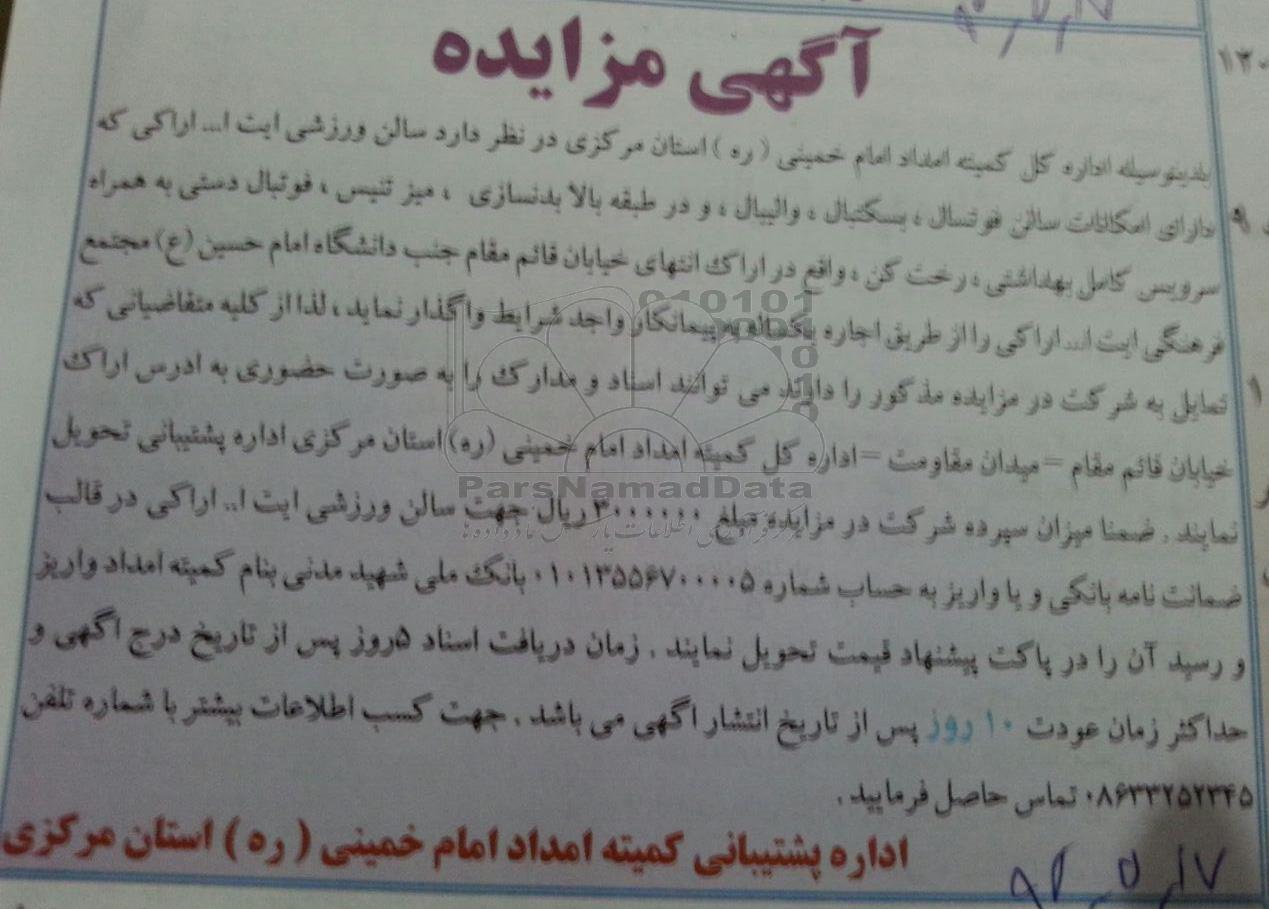 آگهی مزایده
بدینوسیله اداره کل کمیته امداد امام خمینی ( ره ) استان مرکزی در نظر دارد سالن ورزشی ایت ا... اراکی که
دارای امکانات سالن فوتسال ، بسکتبال ، والیبال ، و در طبقه بالا بدنسازی ، میز تنیس ، فوتبال دستی به همراه
سرویس کامل بهداشتی ، رخت کن ، واقع در اراک انتهای خیابان قائم مقام جنب دانشگاه امام حسین (ع) مجتمع
فرهنگی ایت ا... اراکی را از طریق اجاره یکساله به پیمانکار واجد شرایط واگذار نماید ، لذا از کلیه متقاضیانی که
تمایل به شرکت در مزایده مذکور را دارند می توانند اسناد و مدارک را به صورت حضوری به ادرس اراک
خیابان قائم مقام =میدان مقاومت =اداره کل کمیته امداد امام خمینی (ره) استان مرکزی اداره پشتیبانی تحویل
نمایند . ضمنا میزان سپرده شرکت در مزایده مبلغ ۳۰۰۰۰۰۰ ریال جهت سالن ورزشی ایت ا.. اراکی در قالب
ضمانت نامه بانکی و یا واریز به حساب شماره ۰۱۰۱۳۵۵۶۷۰۰۰۰۵ بانک ملی شهید مدنی بنام کمیته امداد واریز
و رسید آن را در پاکت پیشنهاد قیمت تحویل نمایند . زمان دریافت اسناد ۵روز پس از تاریخ درج اگهی و
حداکثر زمان عودت ۱۰ روز پس از تاریخ انتشار اگهی می باشد . جهت کسب اطلاعات بیشتر با شماره تلفن
۰۸۶۳۳۲۵۲۳۴۵ تماس حاصل فرمایید .
اداره پشتیبانی کمیته امداد امام خمینی ( ره ) استان مرکزی
ParsNamadData